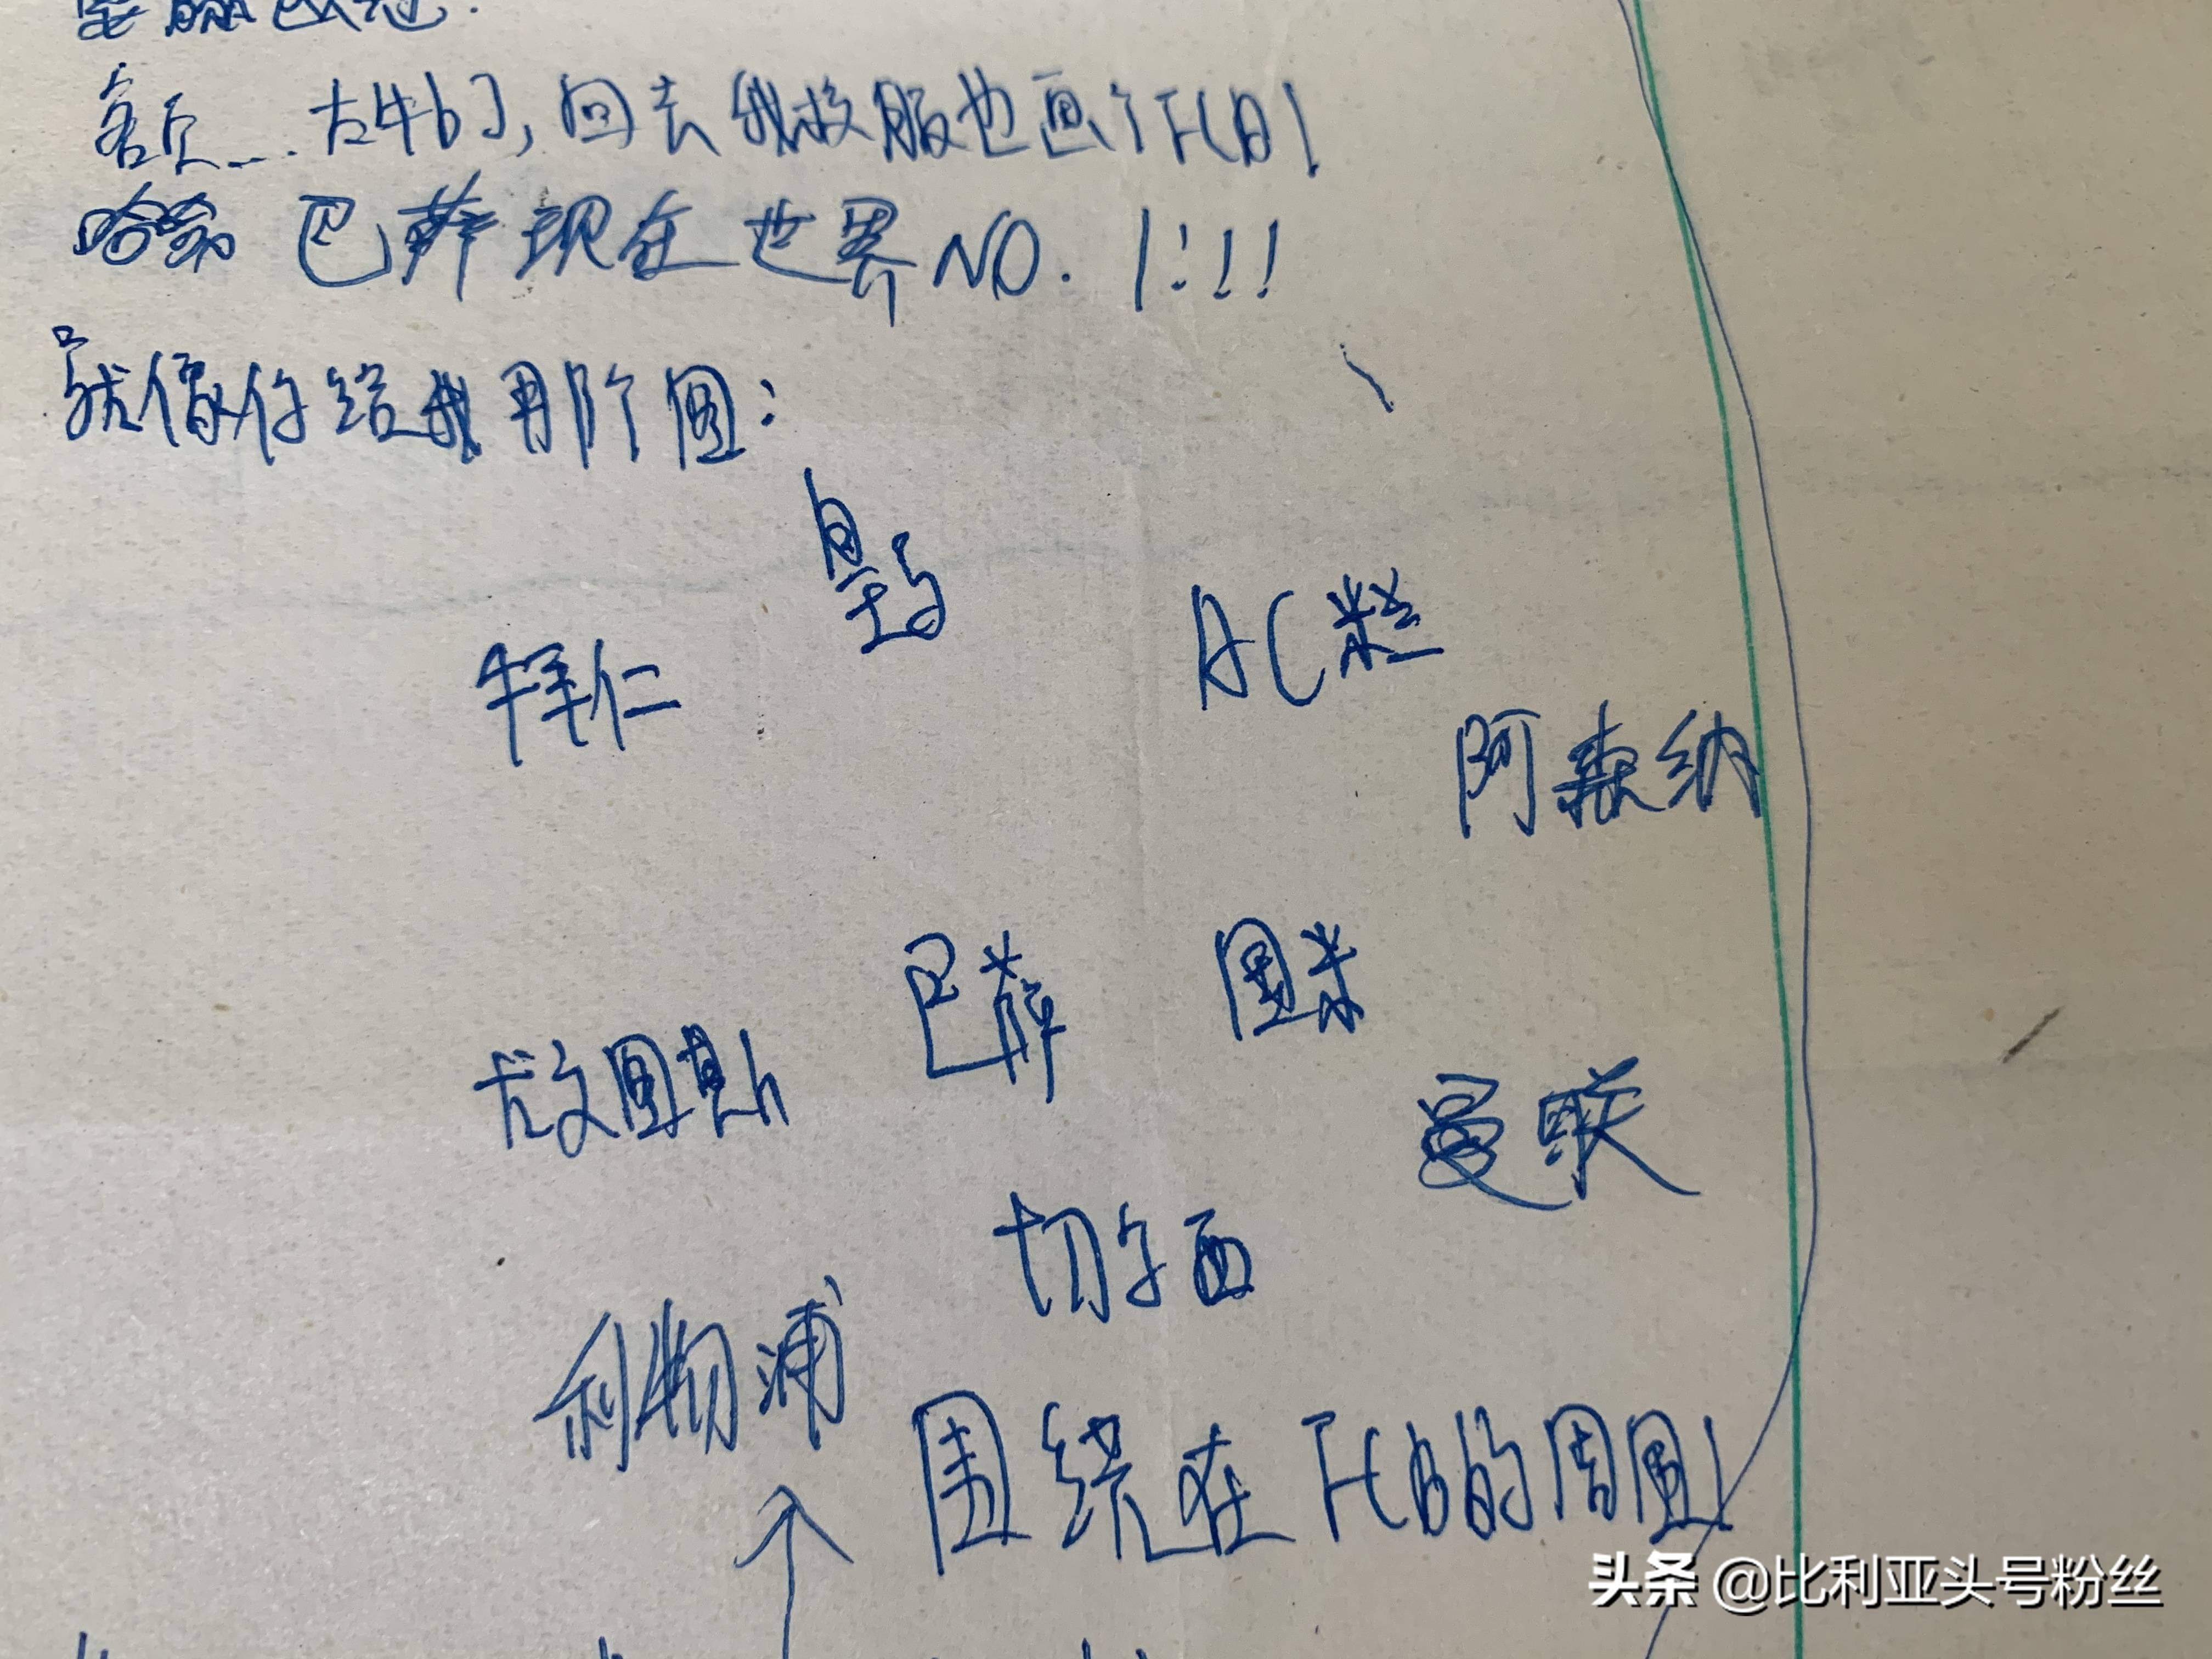 额…太牛b了，回去我校服也画个FCB！
哈哈 巴萨现在世界NO.1!!!
就像你给我那个图：
皇马
拜仁
AC米兰
阿森纳
巴萨
国米
尤文图斯
曼联
切尔西
利物浦
围绕在FCB的周围！
头条 @比利亚头号粉丝